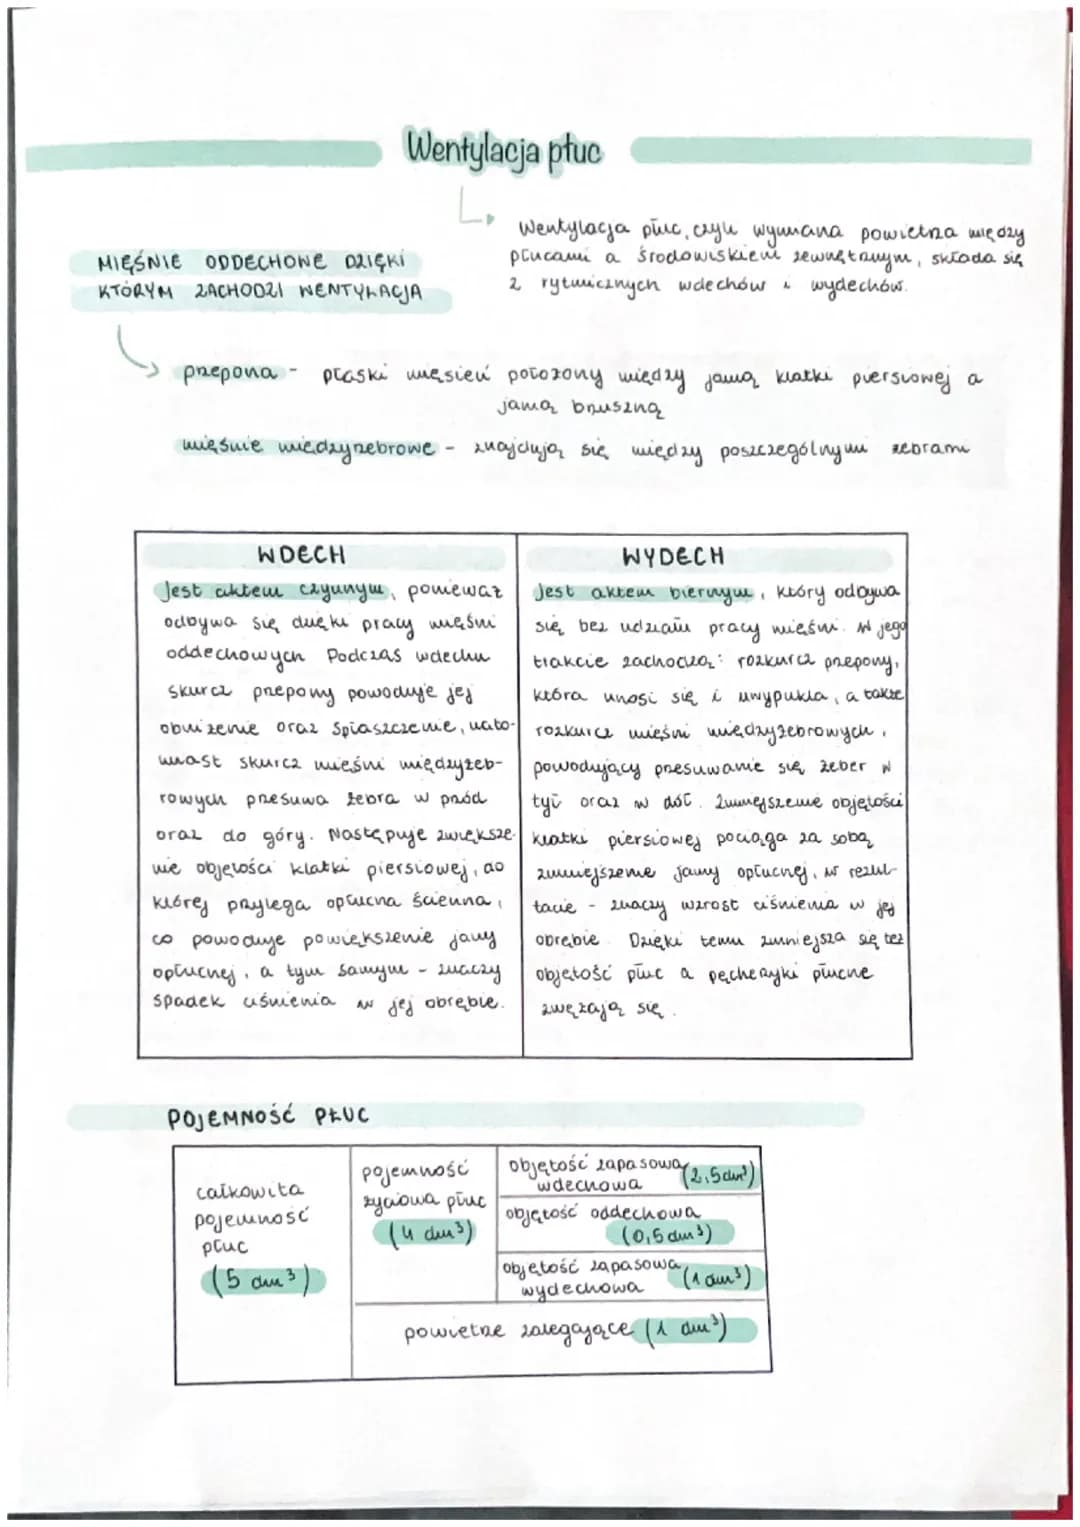 Wentylacja płuc
Wentylacja płuc, czyli wymiana powietrza między
płucami a środowiskiem zewnętrznym, składa się
z rytmicznych wdechów i wydechów.
MIĘŚNIE ODDECHOWE DZIĘKI
KTÓRYM ZACHODZI WENTYLACJA
przepona - płaski mięsień położony między jamą klatki piersiowej a
jamą brzuszną
mięśnie międzyżebrowe - znajdują się między poszczególnymi żebrami
WDECH
Jest aktem czynnym, ponieważ
odbywa się dzięki pracy mięśni
oddechowych Podczas wdechu
skurcz przepony powoduje jej
obniżenie oraz spłaszczenie, nato-
miast skurcz mięśni międzyżeb-
rowych przesuwa żebra w przód
oraz do góry. Następuje zwiększe-
nie objętości klatki piersiowej, do
której przylega opłucna ścienna,
co powoduje powiększenie jamy
opłucnej, a tym samym - znaczy
spadek ciśnienia w jej obrębie.
WYDECH
Jest aktem biernym, który odbywa
się bez udziału pracy mięśni. W jego
trakcie zachodzą: rozkurcz przepony,
która unosi się i uwypukla, a także
rozkurcz mięśni międzyżebrowych,
powodujący przesuwanie się żeber w
tył oraz w dół. Zmniejszenie objętości
klatki piersiowej pociąga za sobą
zmniejszenie jamy opłucnej, w rezul-
tacie - znaczy wzrost ciśnienia w jej
obrębie. Dzięki temu zmniejsza się też
objętość płuc a pęcherzyki płucne
zwężają się.
POJEMNOŚĆ PŁUC
całkowita
pojemność
płuc
(5 dm³)
pojemność
życiowa płuc
(4 dm³)
objętość zapasowa
wdechowa (2,5 dm³)
objętość oddechowa
(0,5 dm³)
objętość zapasowa
wydechowa (1 dm³)
powietrze zalegające (1 dm³)